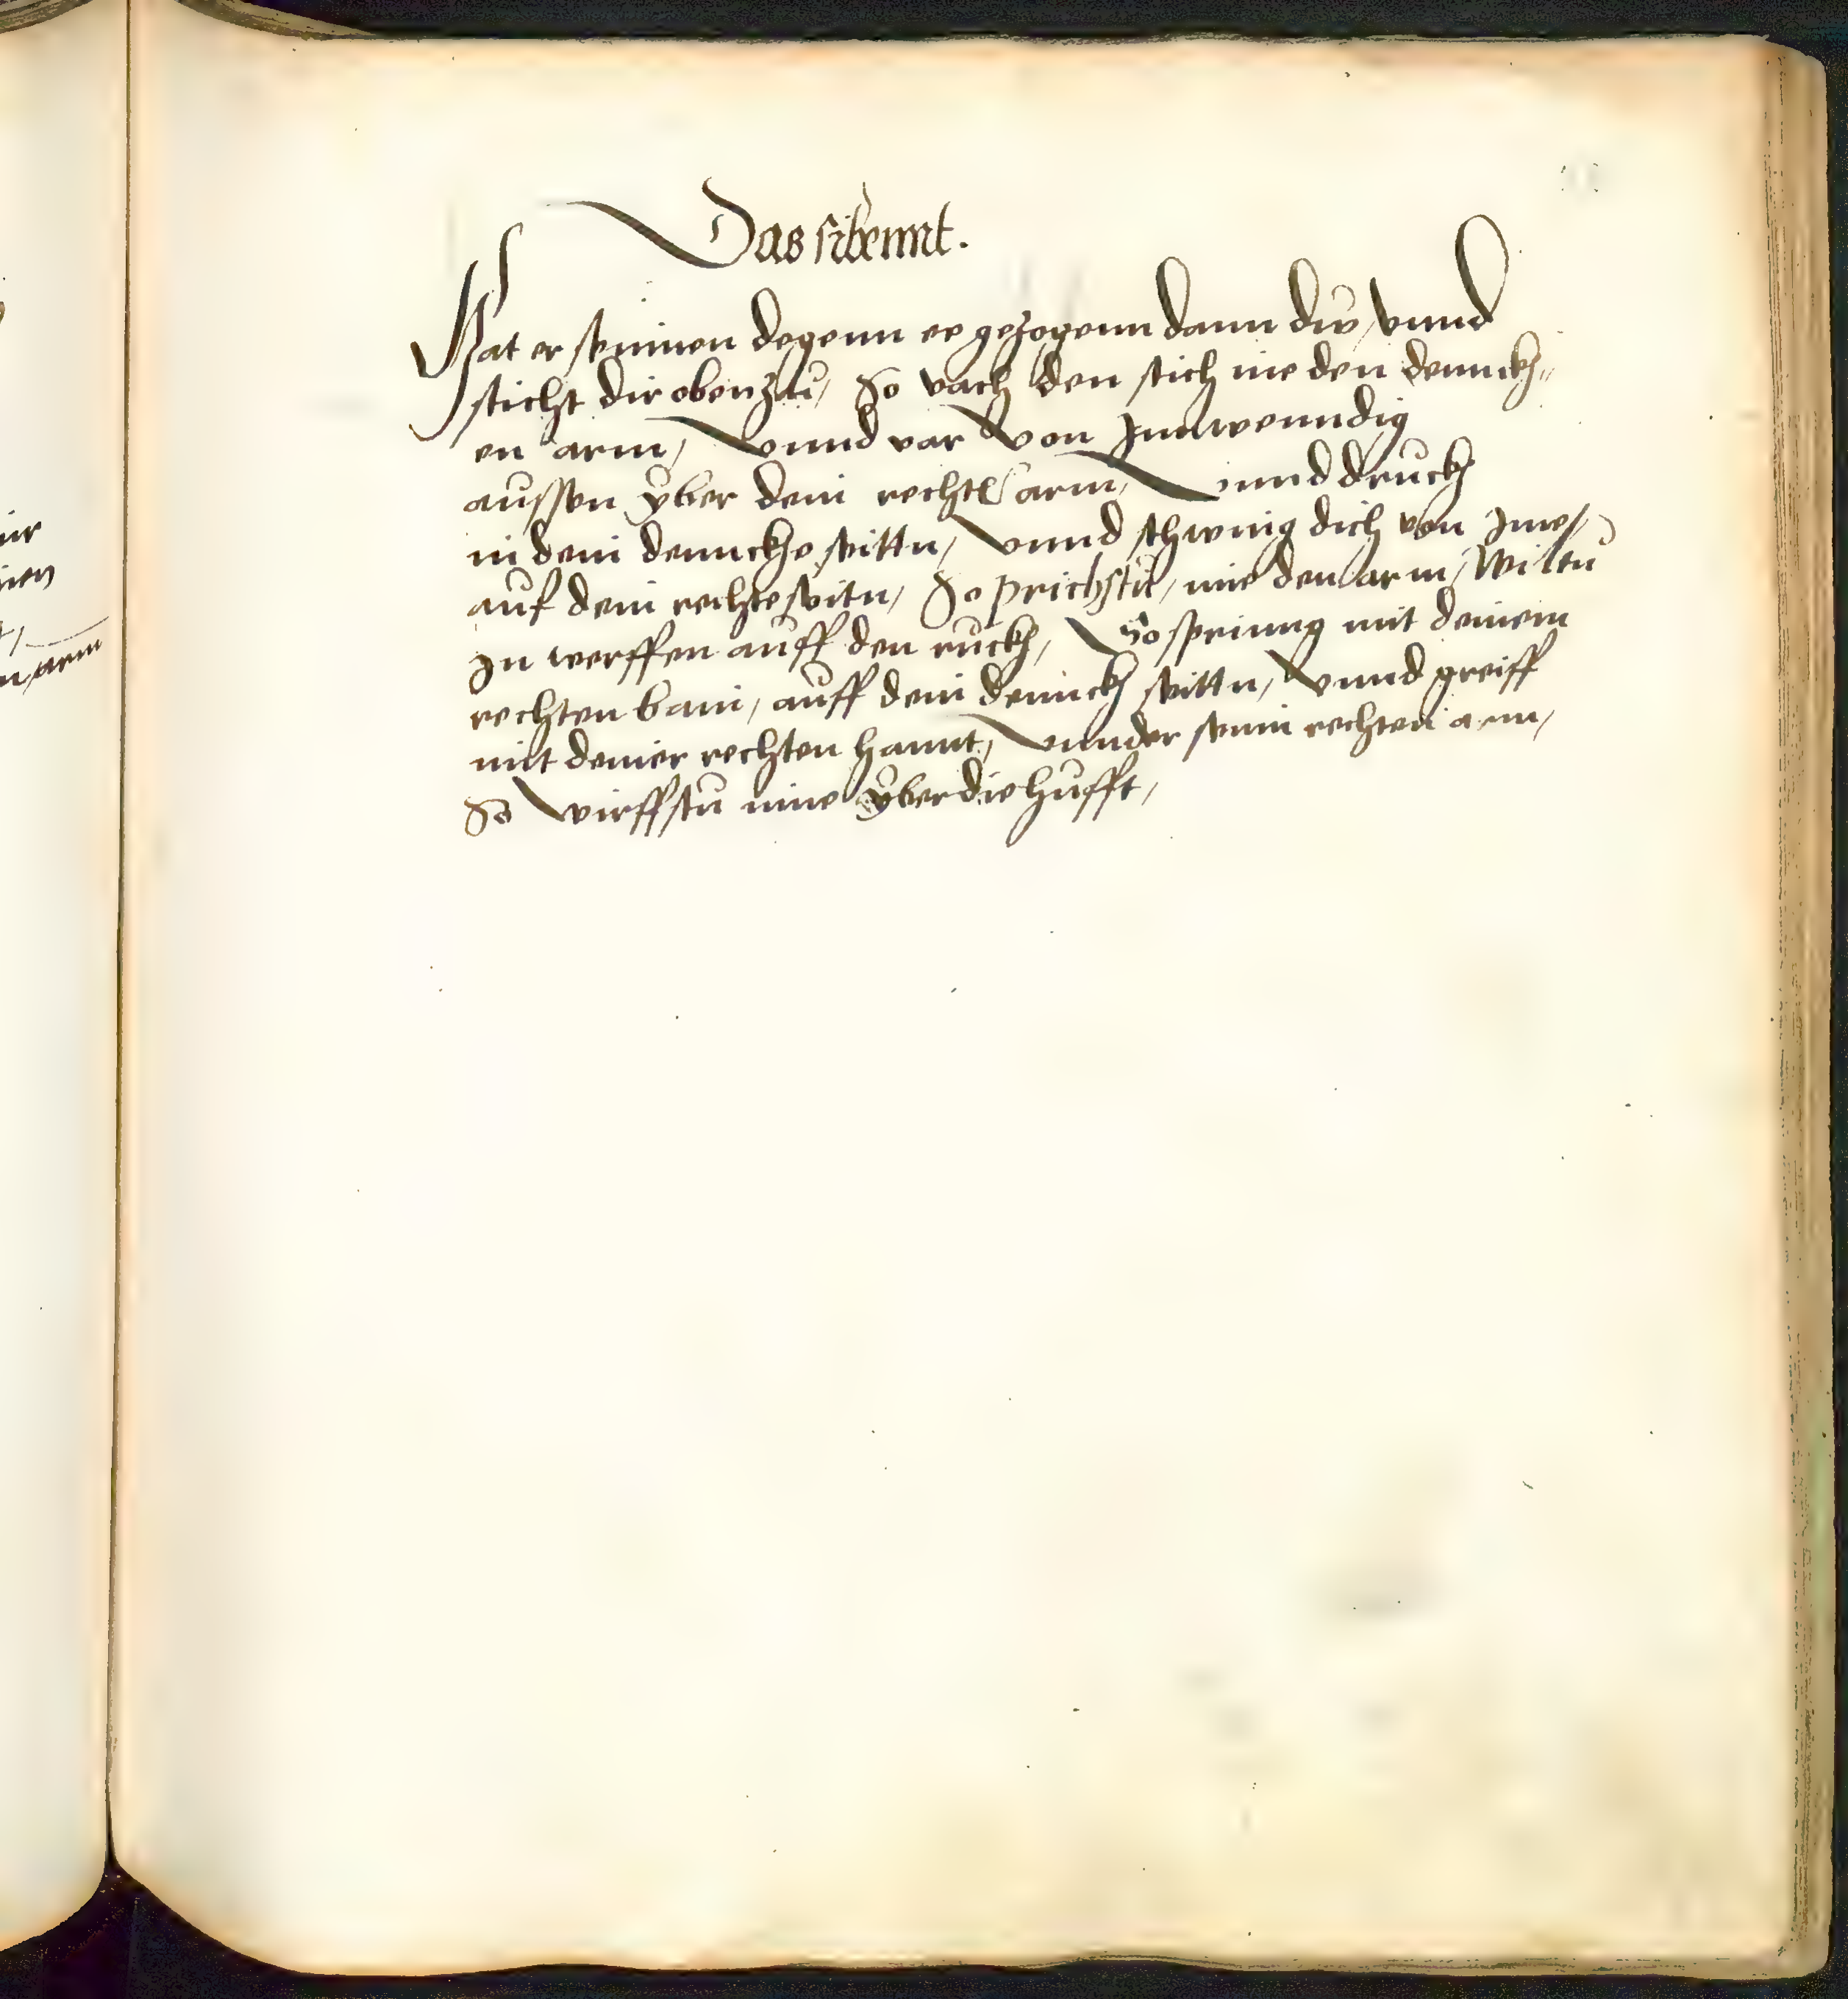 Das sibennt.
Hat er seinnen degenn ee gezogenn dann dw / vnnd
sticht dir oben zu / So vach den stich ine den dennckh„
en arm / vnnd var von Innwenndig
aussen yber dein rechte arm / vnnd druckh
in dein denncke seittn / vnnd schwing dich von Ime /
auf dein rechte seitn / So prichstu / ime den arm / Wiltu
In werffen auff den ruckh / So sprinng mit deinem
rechten bain / auff dein dennckh seittn / vnnd greiff
mit deiner rechten hannt / vnnder sein rechten arm /
So wirffstu ime yber die hufft /
ir
nen
n arm